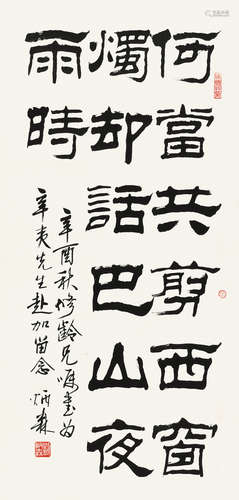 何當共剪西窗
燭却話巴山夜
雨時
辛酉秋修齡兄囑書為
辛夷先生赴加留念 炳森